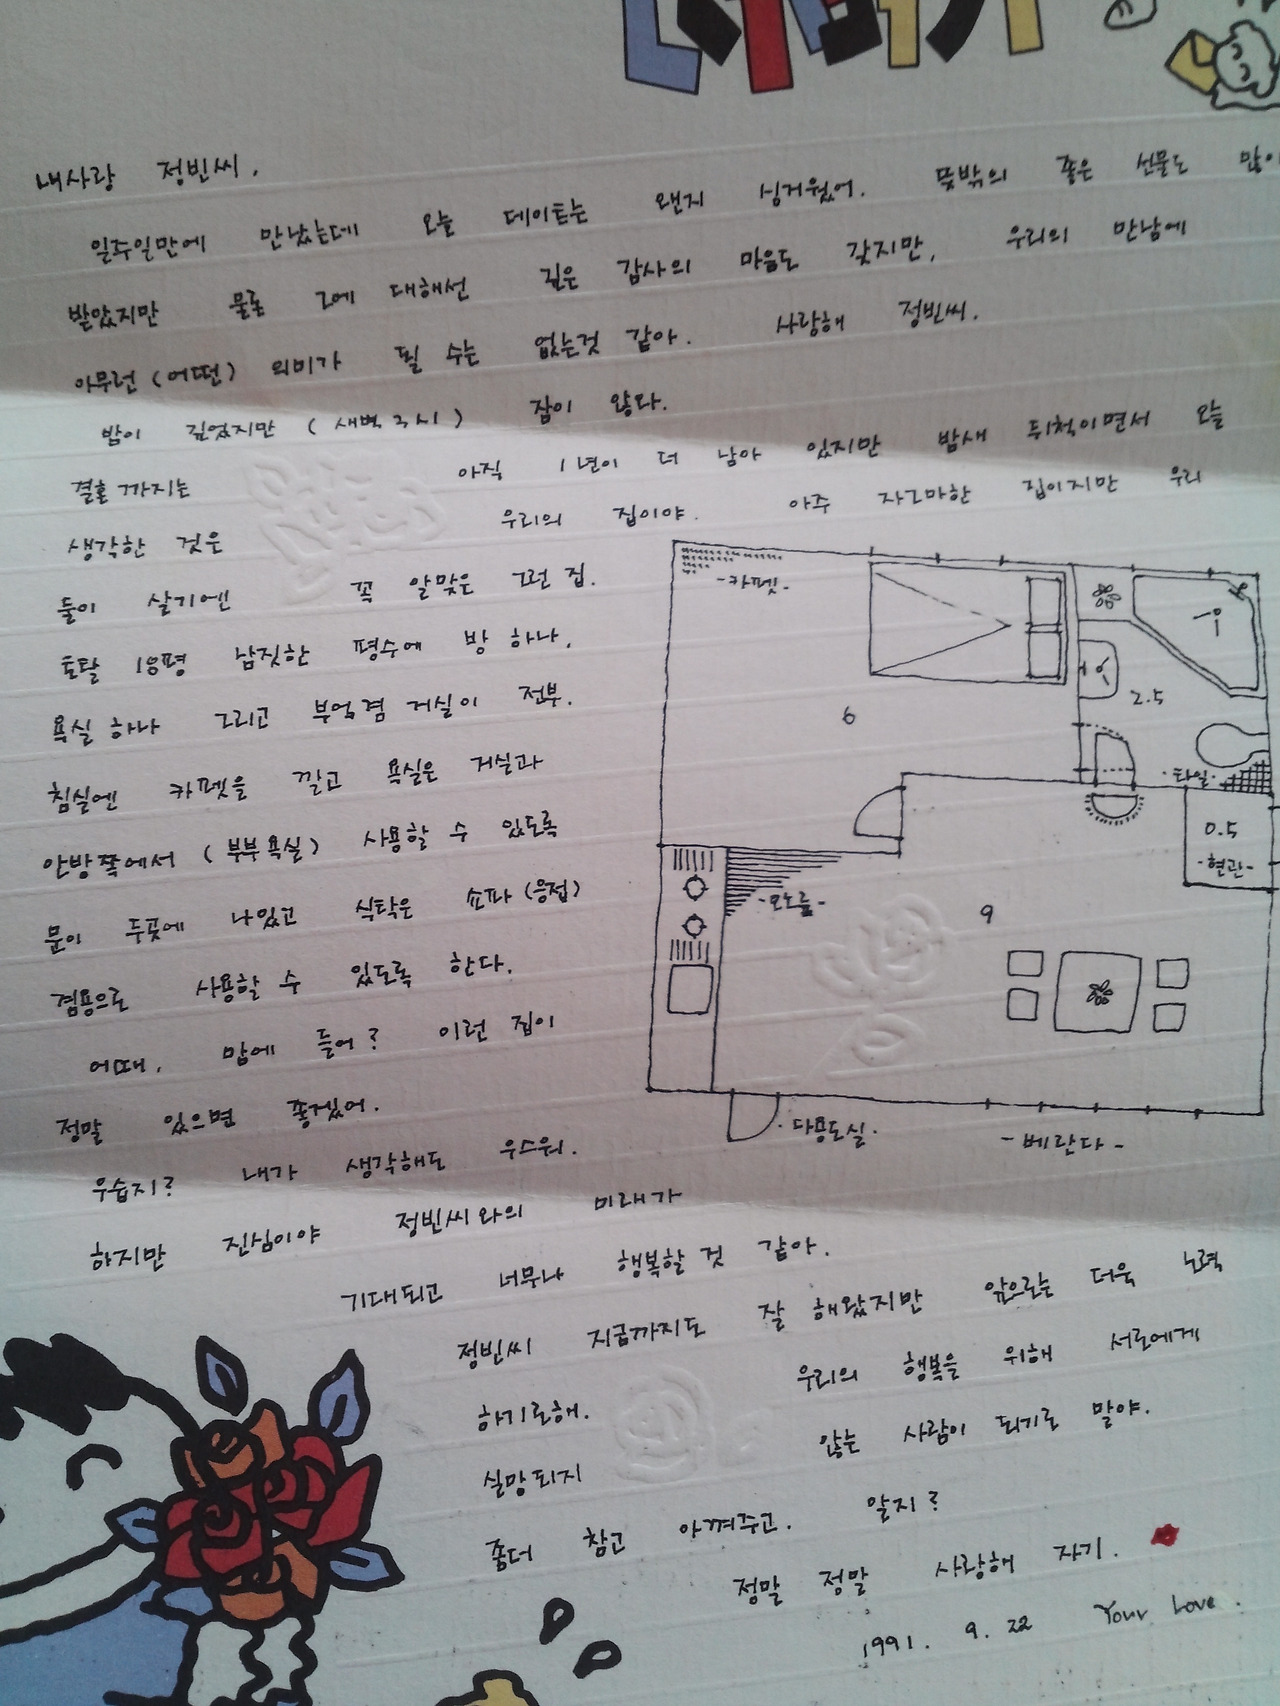 내사랑 정빈씨.
일주일만에 만났는데 오늘 데이트는 왠지 싱거웠어. 뜻밖의 좋은 선물도 많이
받았지만 물론 그에 대해선 깊은 감사의 마음도 갖지만, 우리의 만남에
아무런 (어떤) 의미가 될 수는 없는것 같아. 사랑해 정빈씨.
밤이 깊었지만 (새벽 3시) 잠이 않다.
결혼까지는 아직 1년이 더 남아 있지만 밤새 뒤척이면서 오늘
생각한 것은 우리의 집이야. 아주 자그마한 집이지만 우리
둘이 살기엔 꼭 알맞은 그런 집.
토탈 18평 남짓한 평수에 방 하나,
욕실 하나 그리고 부엌겸 거실이 전부.
침실엔 카펫을 깔고 욕실은 거실과
안방쪽에서 (부부욕실) 사용할 수 있도록
문이 두곳에 나있고 식탁은 쇼파 (응접)
겸용으로 사용할 수 있도록 한다.
어때, 맘에 들어? 이런 집이
정말 있으면 좋겠어.
우습지? 내가 생각해도 우스워.
하지만 진심이야 정빈씨와의 미래가
기대되고 너무나 행복할 것 같아.
정빈씨 지금까지도 잘 해왔지만 앞으로는 더욱 노력
하기로해. 우리의 행복을 위해 서로에게
실망되지 않는 사람이 되기로 말야.
좀더 참고 아껴주고. 알지?
정말 정말 사랑해 자기.
1991. 9. 22 Your Love.
-카펫-
6
2.5
·타일·
0.5
-현관-
-모노륨-
9
·다용도실·
-베란다-